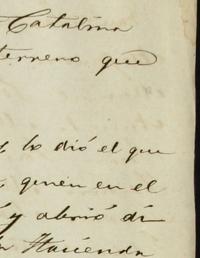 Catalina
terreno que
lo dió el que
quien en el
y abrió di
Hacienda